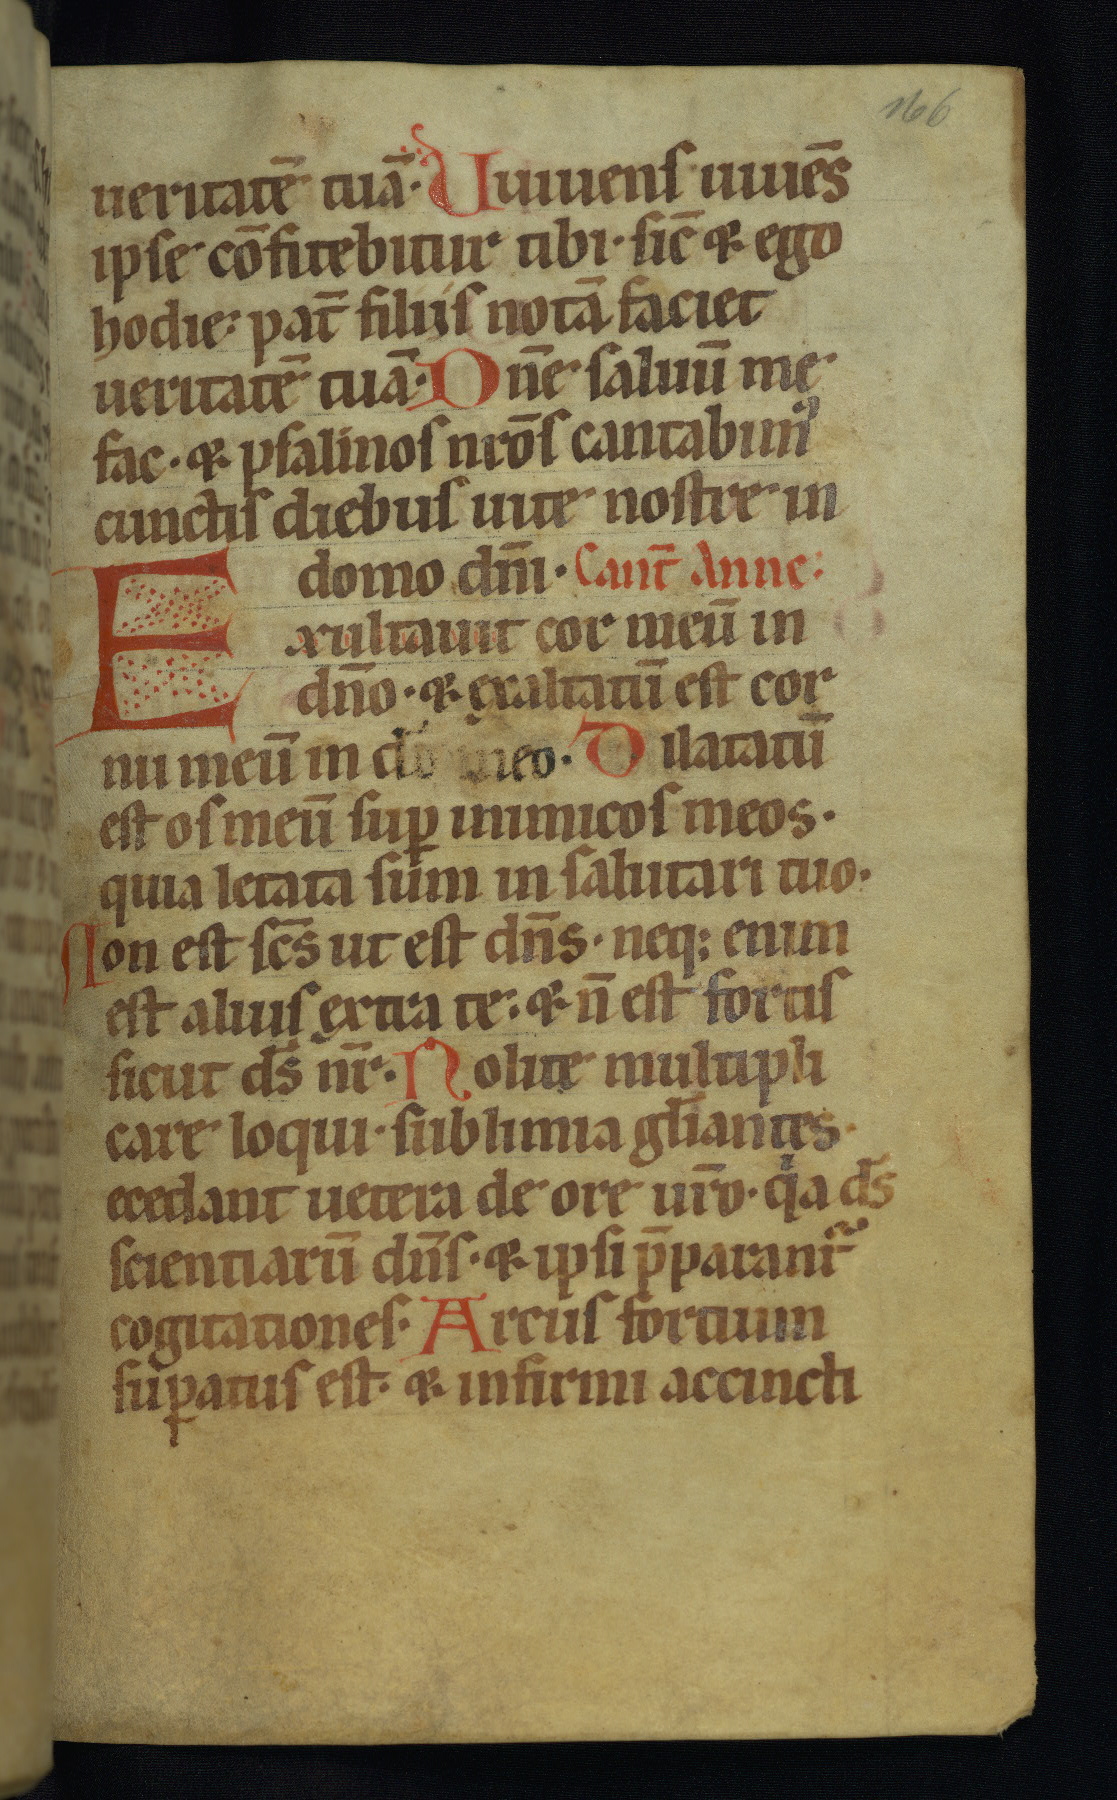 166
ueritatē tuā· Uiuiens uiuēs
ipse cōfitebitur tibi· sic̄ & ego
hodie· pat̄ filiis notā faciet
ueritatē tuā· Dn̄e saluū me
fac· & psalmos nrōs cantabimꝰ
cunctis diebus uite nostre in
domo dn̄i· Cant̄ Anne·
Exultauit cor meū in
dn̄o· & exaltatū est cor
nu meū in dō meo· Dilatatū
est os meū suꝑ inimicos meos·
quia letata sum in salutari tuo·
Non est sc̄s ut est dn̄s· neq; enim
est alius extra te· & n̄ est fortis
sicut ds̄ nr̄· Nolite multipli
care loqui· sublimia gl̄iantes·
recedant uetera de ore ur̄o· qͥa ds̄
scientiarū dn̄s· & ipsi p̄parant᷑
cogitationes· Arcus fortium
suꝑatus est· & infirmi accincti